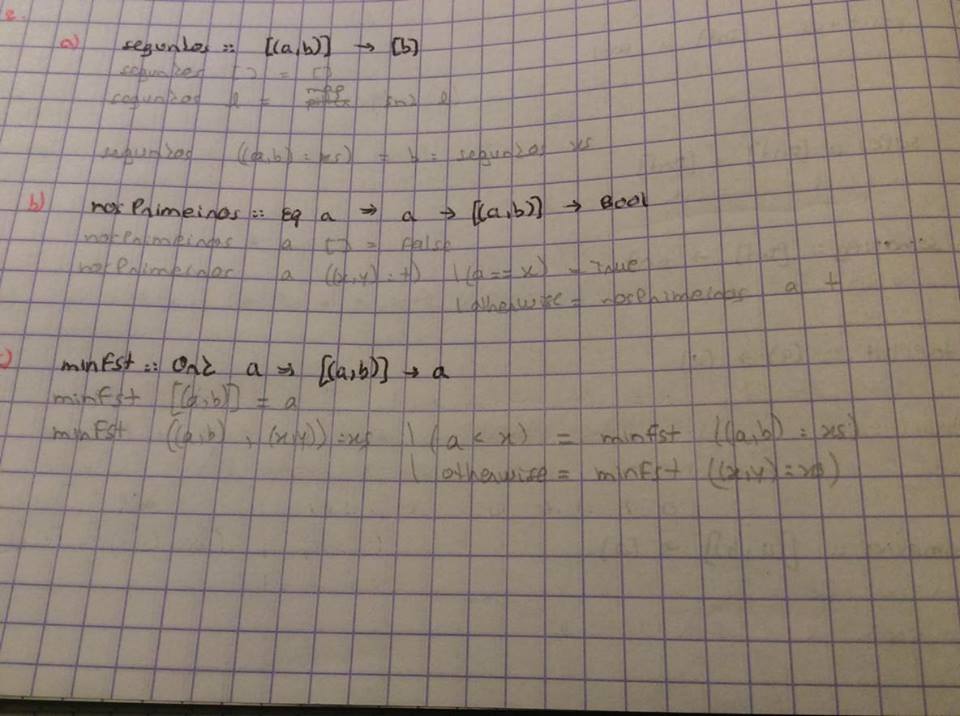 2.
a) segundos :: [(a,b)] → [b]
segundos [] = []
segundos l = map snd l
segundos ((a,b) : xs) = b : segundos xs
b) nosPrimeiros :: Eq a => a → [(a,b)] → Bool
nosPrimeiros a [] = False
nosPrimeiros a ((x,y) : t) | (a == x) = True
| otherwise = nosPrimeiros a t
c) minFst :: Ord a => [(a,b)] → a
minFst [(a,b)] = a
minFst ((a,b) , (x,y)) : xs | (a < x) = minFst ((a,b) : xs)
| otherwise = minFst ((x,y) : xs)